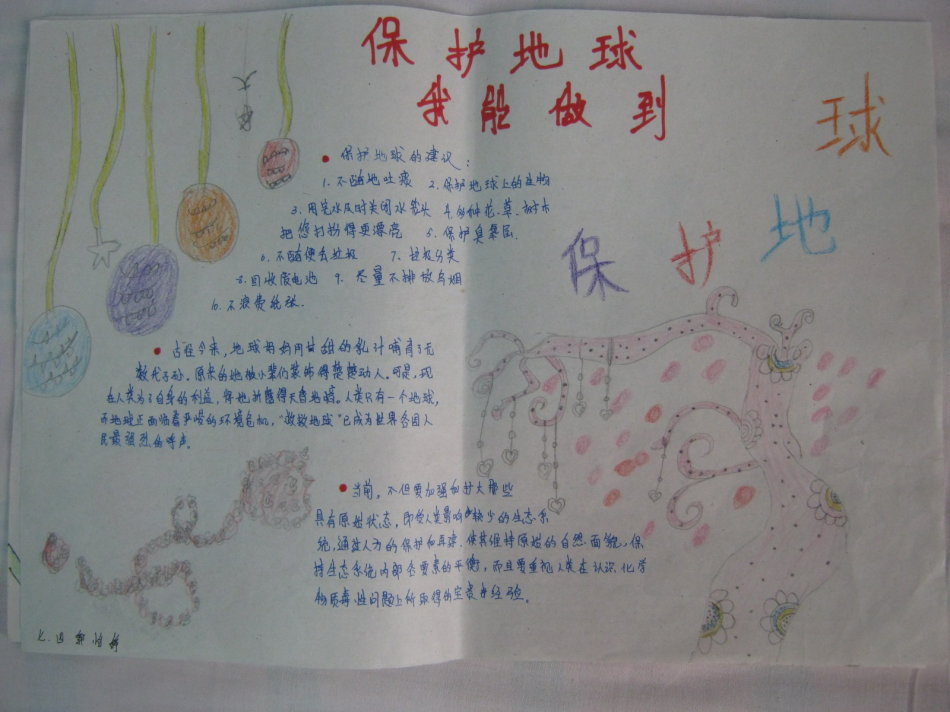 保护地球
我能做到
球
保护地
保护地球的建议：
1.不随地吐痰 2.保护地球上的生物
3.用完水及时关闭水龙头 4.多种花、草、树木
把您打扮得更漂亮 5.保护臭氧层.
6.不随便丢垃圾 7.垃圾分类
8.回收废电池 9.尽量不排放乌烟
10.不浪费纸张.
古往今来，地球妈妈用甘甜的乳汁哺育了无
数代子孙。原来的她被小辈们装饰得楚楚动人。可是，现
在人类为了自身的利益，将她折磨得天昏地暗。人类只有一个地球，
而地球正面临着严峻的环境危机，“救救地球”已成为世界各国人
民最强烈的呼声。
当前，不但要加强
具有原始状态，即受人类影响较少的生态系
统，通过人为的保护和，使其维持原始的自然面貌，保
持生态系统内部各要素的平衡，而且要重视人类在认识化学
物质毒性问题上所取得的宝贵经验。